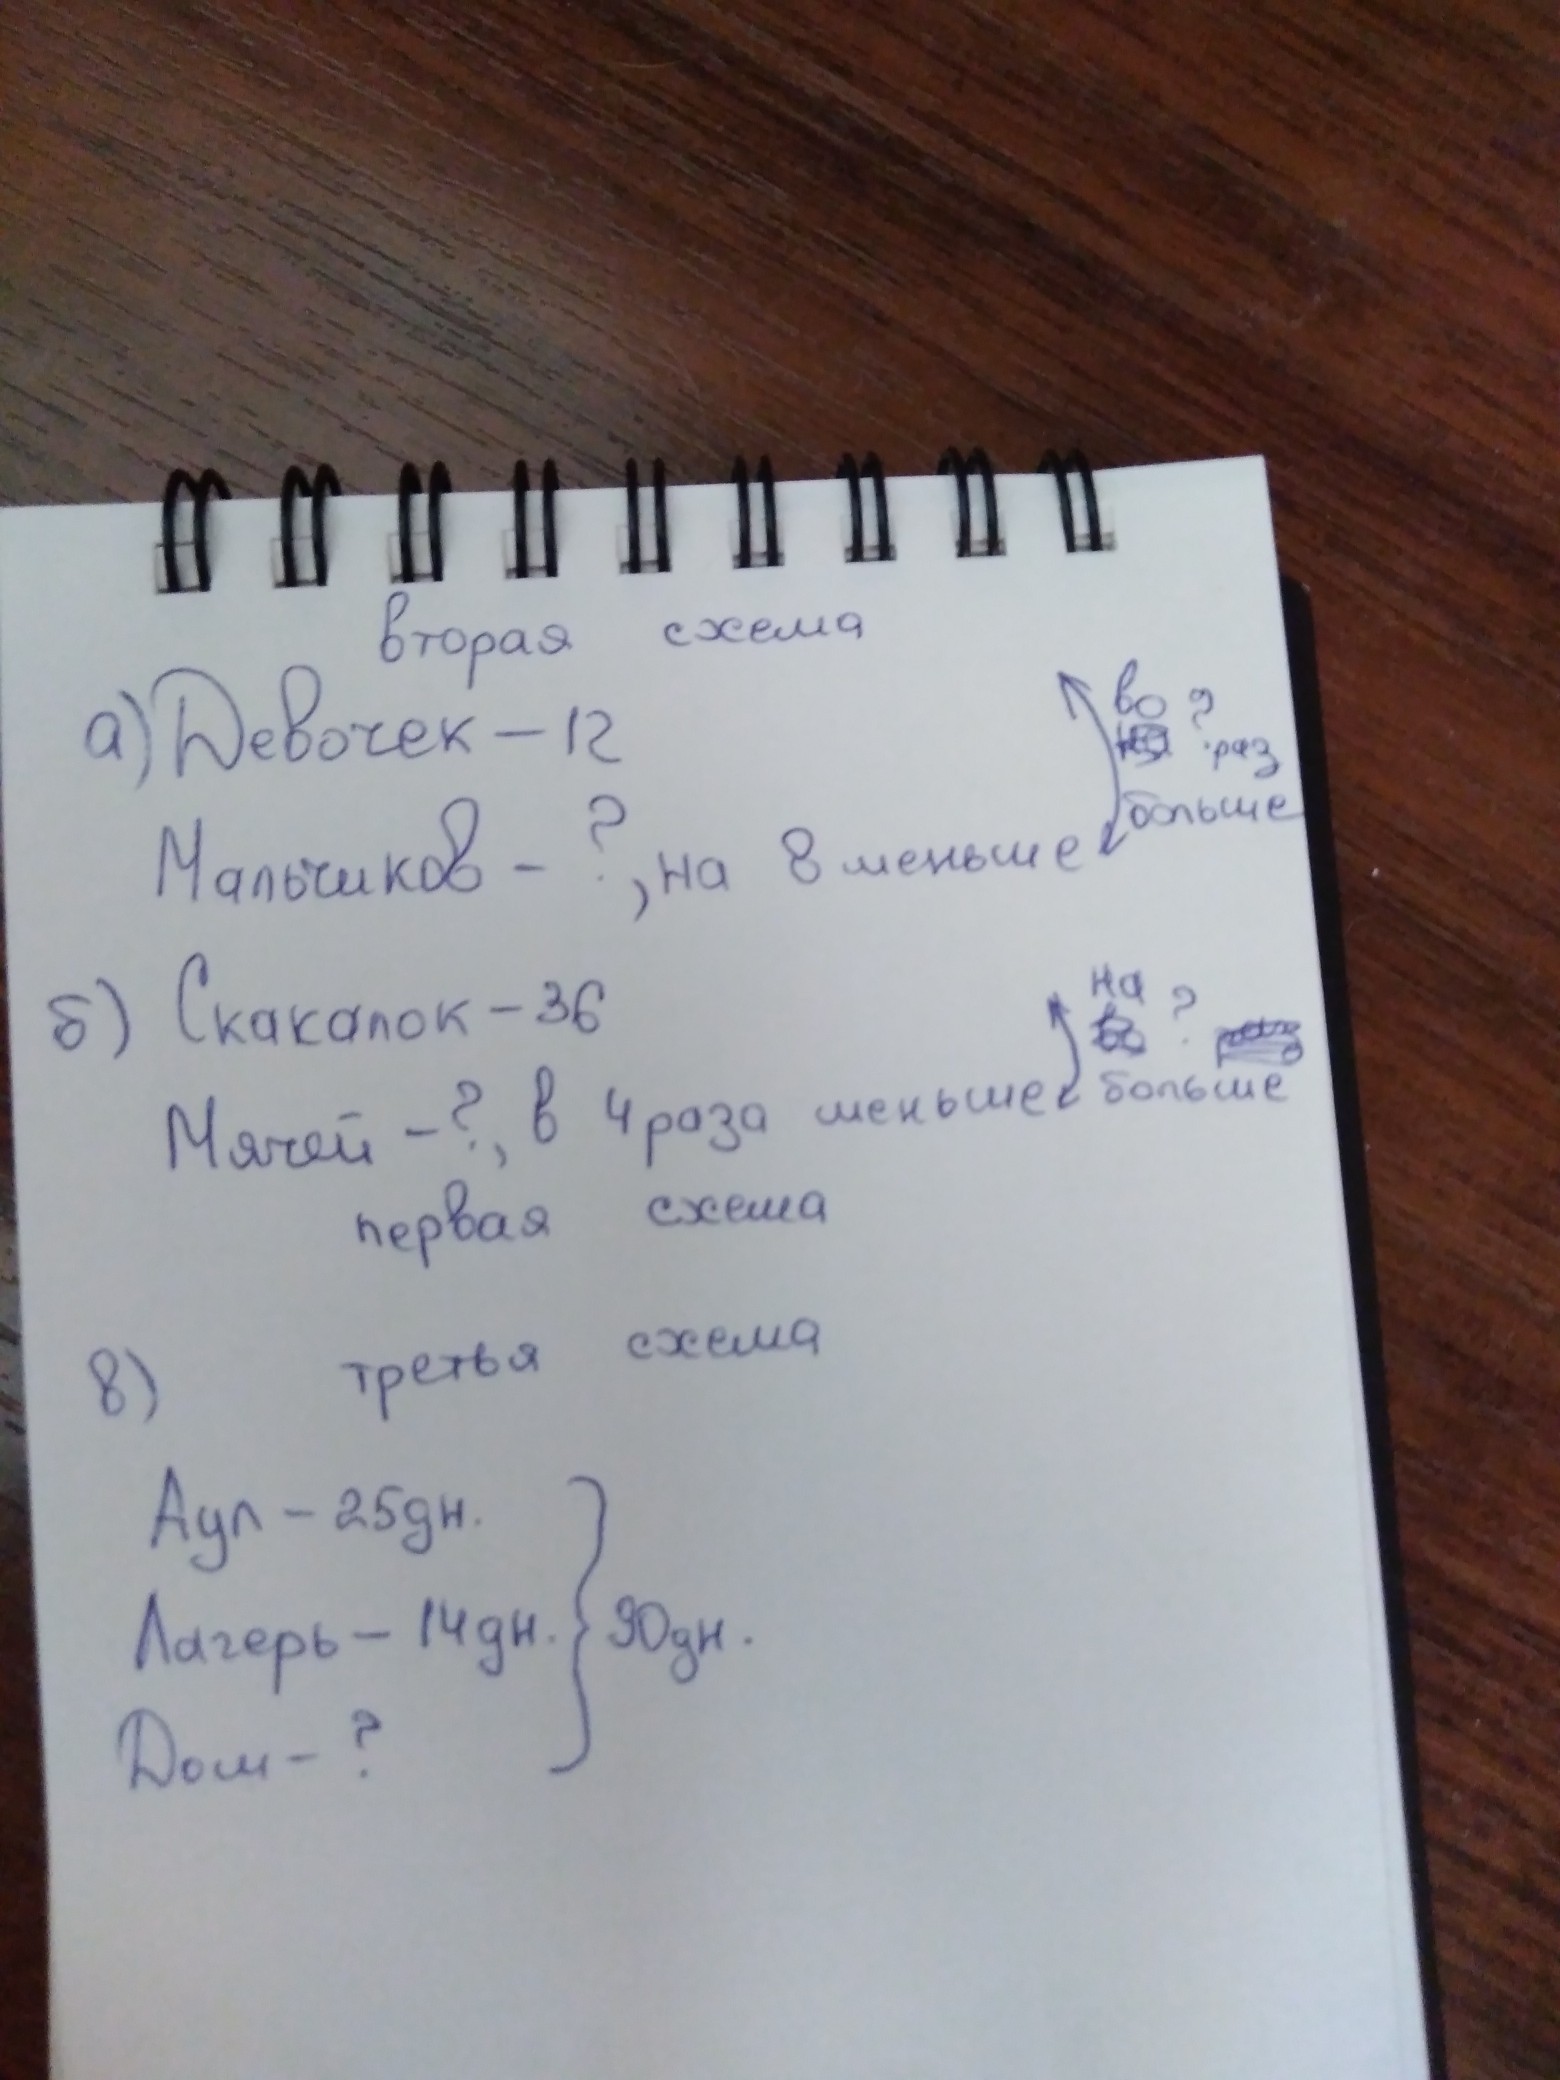 вторая схема
а) Девочек – 12
во ? раз
больше
Мальчиков – ?, на 8 меньше
б) Скакалок – 36
на ?
больше
Мячей – ?, в 4 раза меньше
первая схема
в) третья схема
Аул – 25 дн.
Лагерь – 14 дн.
90 дн.
Дом – ?